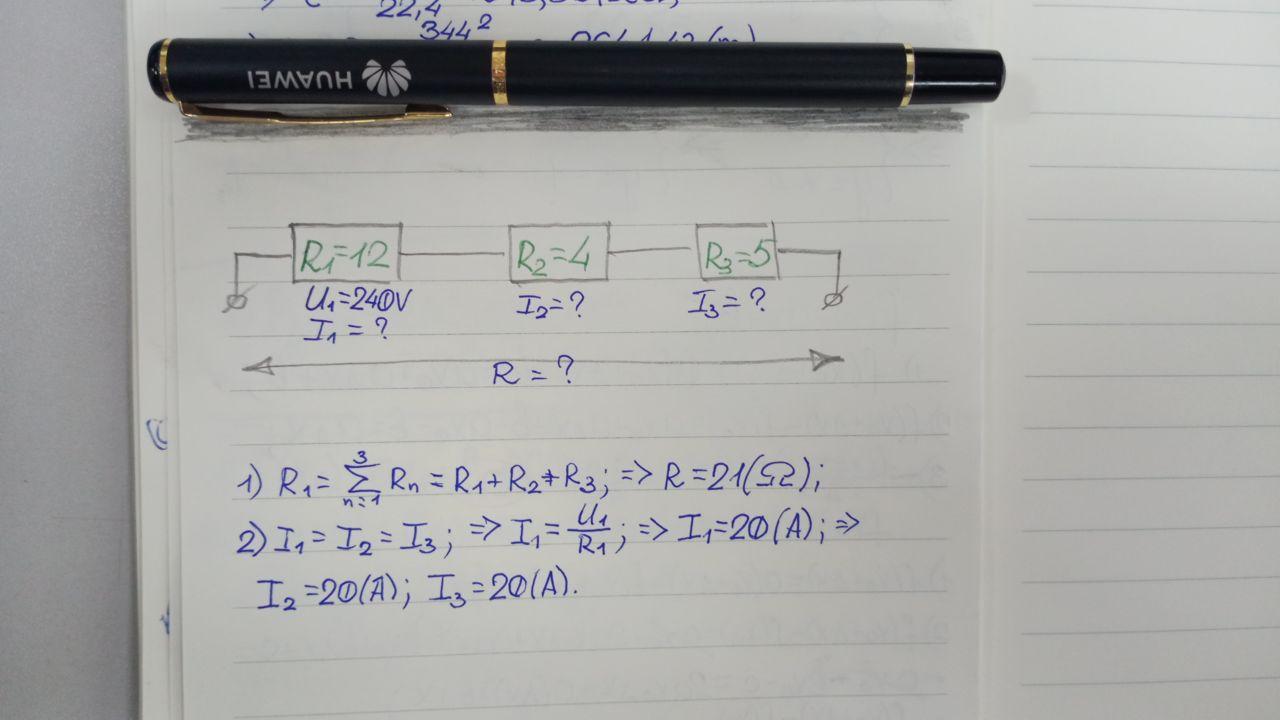 22,4
344²
HUAWEI
R₁=12 R₂=4 R₃=5
U₁=240V I₂=? I₃=?
I₁=?
R=?
1) R₁ = ∑ₙ₌₁³ Rₙ = R₁+R₂+R₃; => R=21(Ω);
2) I₁ = I₂ = I₃; => I₁ = U₁/R₁; => I₁=20(A); =>
I₂=20(A); I₃=20(A).